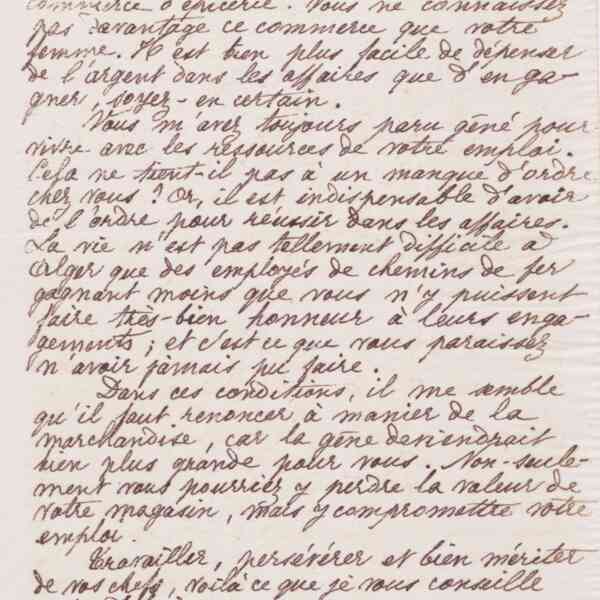 commerce d'épicerie. Vous ne connaissez
pas davantage ce commerce que votre
femme. Il est bien plus facile de dépenser
de l'argent dans les affaires que d'en ga-
gner, soyez-en certain.
Vous m'avez toujours paru gêné pour
vivre avec les ressources de votre emploi.
Cela ne tient-il pas à un manque d'ordre
chez vous ? Or, il est indispensable d'avoir
de l'ordre pour réussir dans les affaires.
La vie n'est pas tellement difficile à
Alger que des employés de chemins de fer
gagnant moins que vous n'y puissent
faire très-bien honneur à leurs enga-
gements ; et c'est ce que vous paraissez
n'avoir jamais pu faire.
Dans ces conditions, il me semble
qu'il faut renoncer à manier de la
marchandise, car la gêne deviendrait
bien plus grande pour vous. Non-seule-
ment vous pourriez y perdre la valeur de
votre magasin, mais y compromettre votre
emploi.
Travailler, persévérer et bien mériter
de vos chefs, voilà ce que je vous conseille